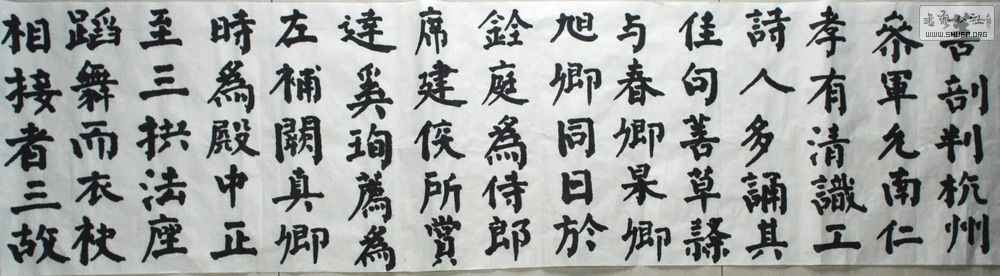 剖判杭州
參軍允南仁
孝有清識工
詩人多誦其
佳句善草隸
与春卿杲卿
旭卿同日於
銓庭為侍郎
席建侯所賞
達奚珣薦為
左補闕真卿
時為殿中正
至三拱法座
蹈舞而衣袂
相接者三故
書法公社
WWW.SHUFA.ORG